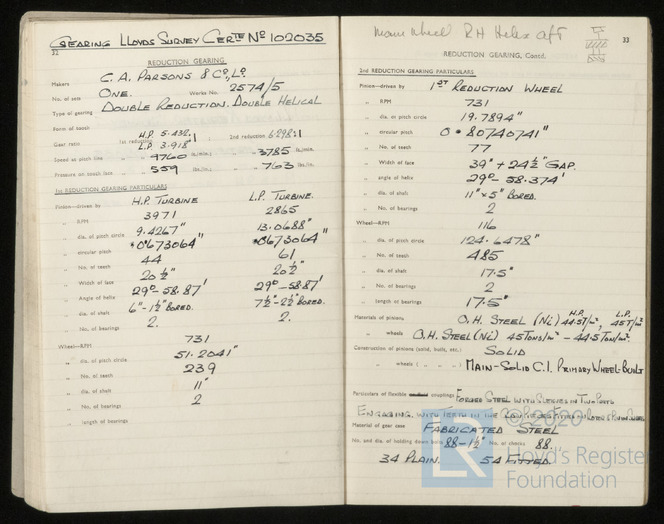 GEARING LLOYDS SURVEY CERTE No 102035
32
REDUCTION GEARING
Makers C. A. PARSONS & Co, Ld.
No. of sets ONE. Works No. 2574/5
Type of gearing DOUBLE REDUCTION. DOUBLE HELICAL
Form of tooth
Gear ratio 1st reduction H.P. 5.432 :1 2nd reduction 6.298:1
L.P. 3.918
Speed at pitch line 9760 ft./min.; 3785 ft./min.
Pressure on tooth face 559 lbs./in.; 763 lbs./in.
1st REDUCTION GEARING PARTICULARS
Pinion—driven by H.P. TURBINE L.P. TURBINE.
„ RPM 3971 2865
„ dia. of pitch circle 9.4267" 13.0688"
„ circular pitch •0673064" •0673064"
„ No. of teeth 44 61
„ Width of face 20½" 20½"
„ Angle of helix 29°-58.87' 29°-58.87'
„ dia. of shaft 6"-1½" BORED. 7½"-2½" BORED.
„ No. of bearings 2. 2.
Wheel—RPM 731
„ dia. of pitch circle 51.2041"
„ No. of teeth 239
„ dia. of shaft 11"
„ No. of bearings 2
„ length of bearings
Main wheel RH Helix aft
33
REDUCTION GEARING, Contd.
2nd REDUCTION GEARING PARTICULARS
Pinion—driven by 1ST REDUCTION WHEEL
„ RPM 731
„ dia. of pitch circle 19.7894"
„ circular pitch 0•80740741"
„ No. of teeth 77
„ Width of face 39" + 24½" GAP.
„ angle of helix 29°-58.374'
„ dia. of shaft 11"×5" BORED.
„ No. of bearings 2
Wheel—RPM 116
„ dia. of pitch circle 124.6478"
„ No. of teeth 485
„ dia. of shaft 17.5"
„ No. of bearings 2
„ length of bearings 17.5"
Materials of pinions O.H. STEEL (Ni) H.P. 44.5T/in², L.P. 45T/in²
„ wheels O.H. STEEL (Ni) 45 TONS/in² - 44.5 TON/in².
Construction of pinions (solid, built, etc.) SOLID
„ wheels ( „ „ ) MAIN-SOLID C.I. PRIMARY WHEEL-BUILT
Particulars of flexible couplings FORGED STEEL WITH SLEEVES IN TWO PARTS
ENGAGING WITH TEETH IN THE
Material of gear case FABRICATED STEEL
No. and dia. of holding down bolts 88-1½" No. of chocks 88.
34 PLAIN. 54 FITTED.
LR
© 2020
Lloyd's Register
Foundation